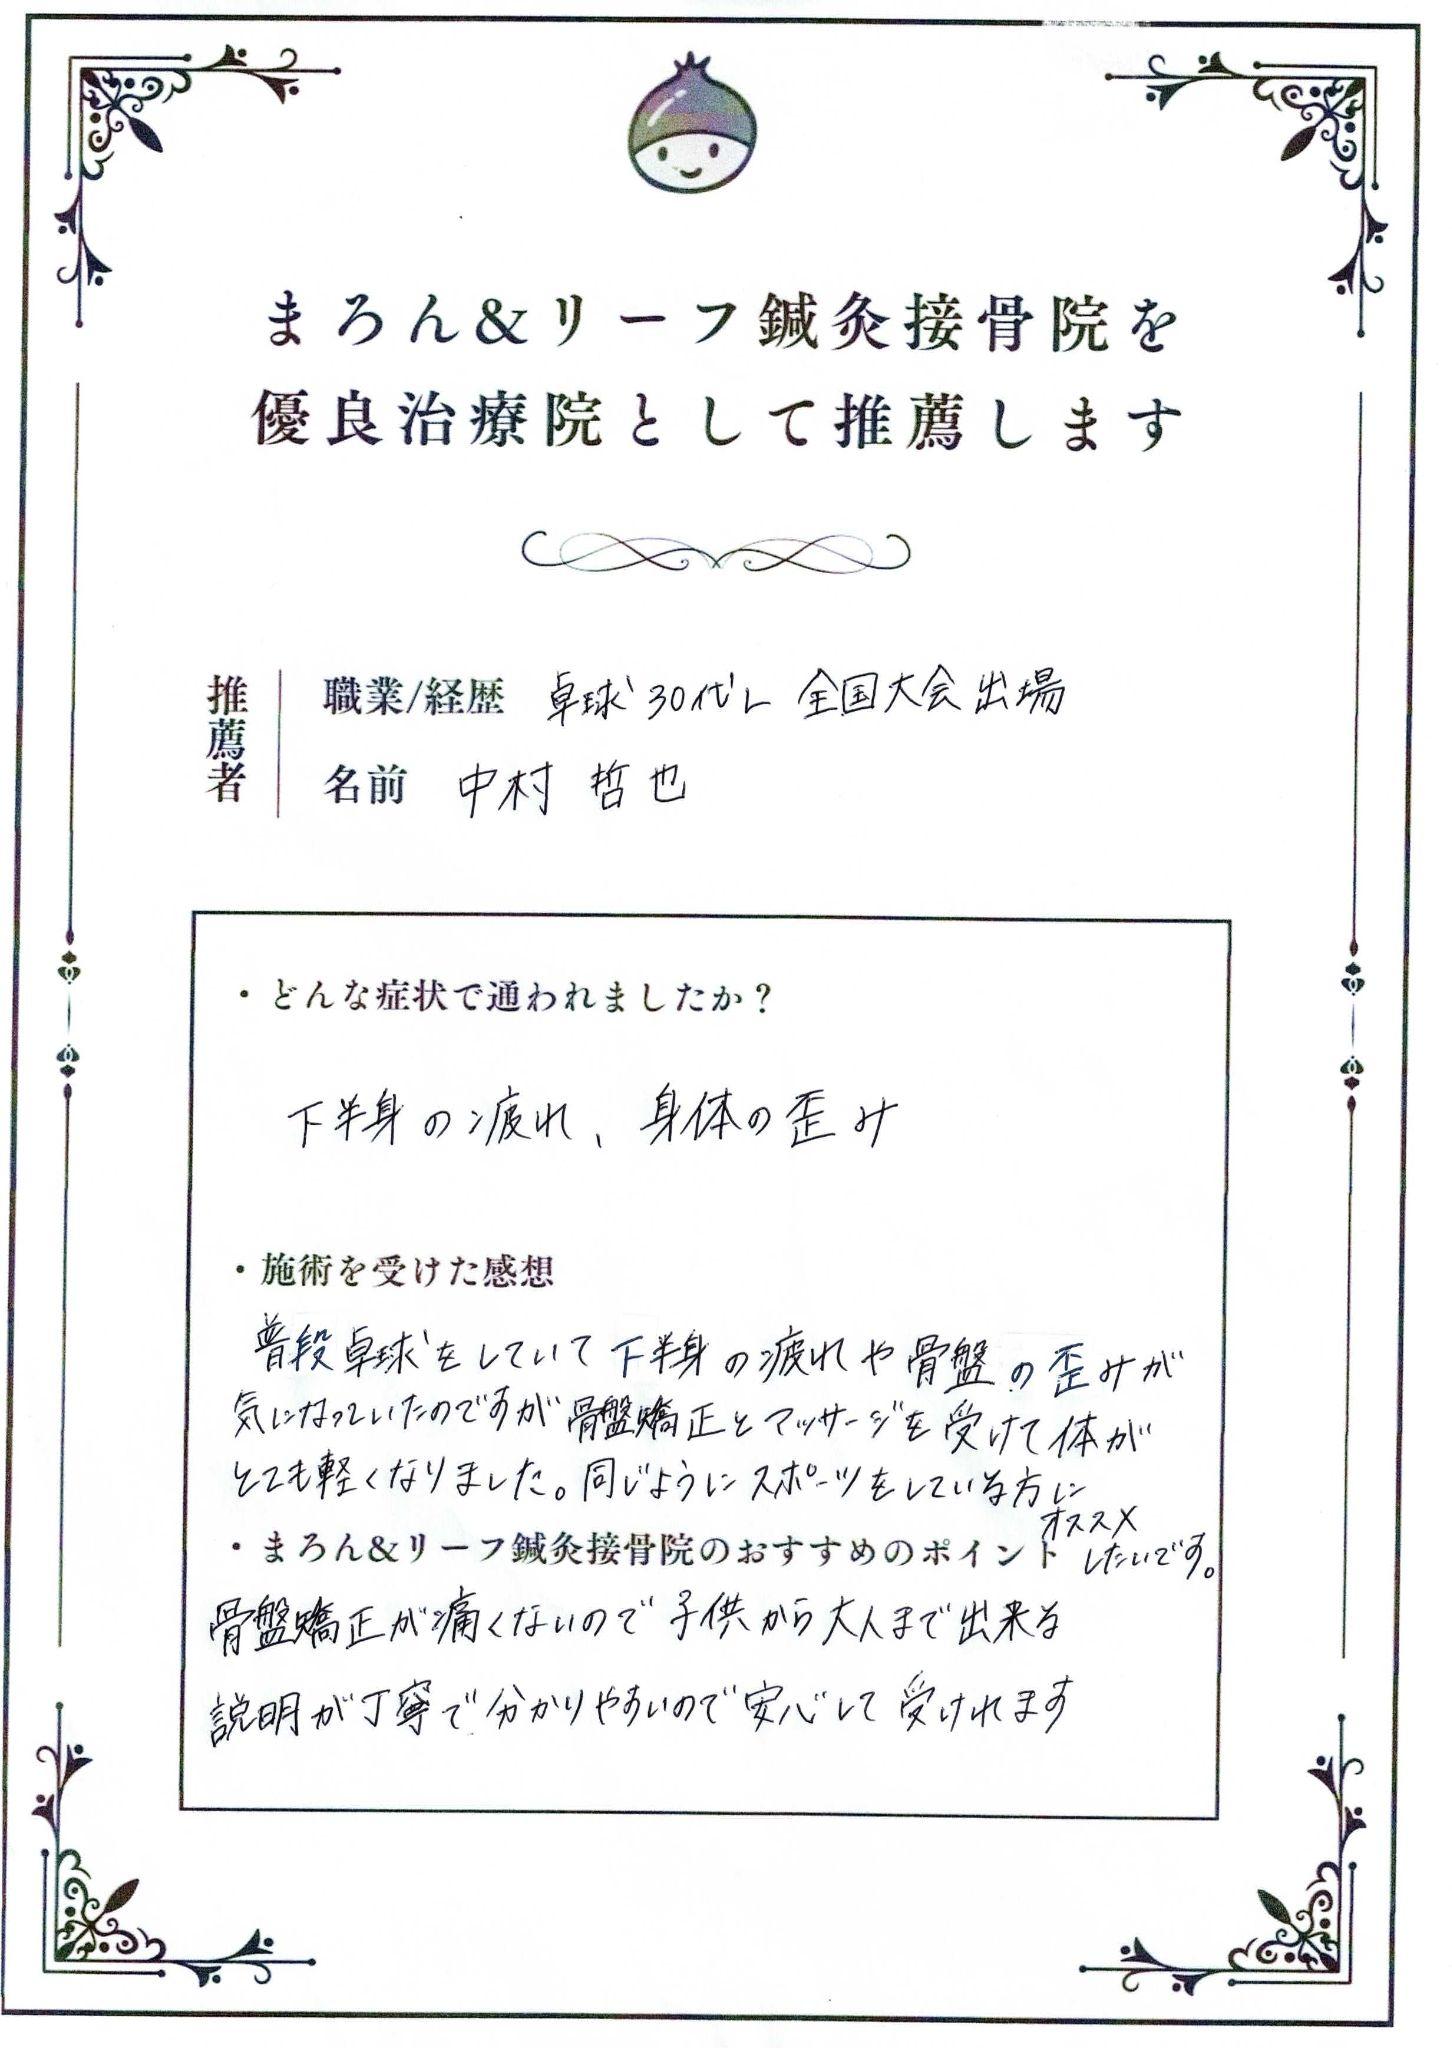 まろん&リーフ鍼灸接骨院を
優良治療院として推薦します
推薦者
職業/経歴 卓球30代 全国大会出場
名前 中村 哲也
・どんな症状で通われましたか？
下半身の疲れ、身体の歪み
・施術を受けた感想
普段卓球をしていて下半身の疲れや骨盤の歪みが
気になっていたのですが骨盤矯正とマッサージを受けて体が
とても軽くなりました。同じようにスポーツをしている方に
オススメ
したいです。
・まろん&リーフ鍼灸接骨院のおすすめのポイント
骨盤矯正が痛くないので子供から大人まで出来る
説明が丁寧で分かりやすいので安心して受けれます